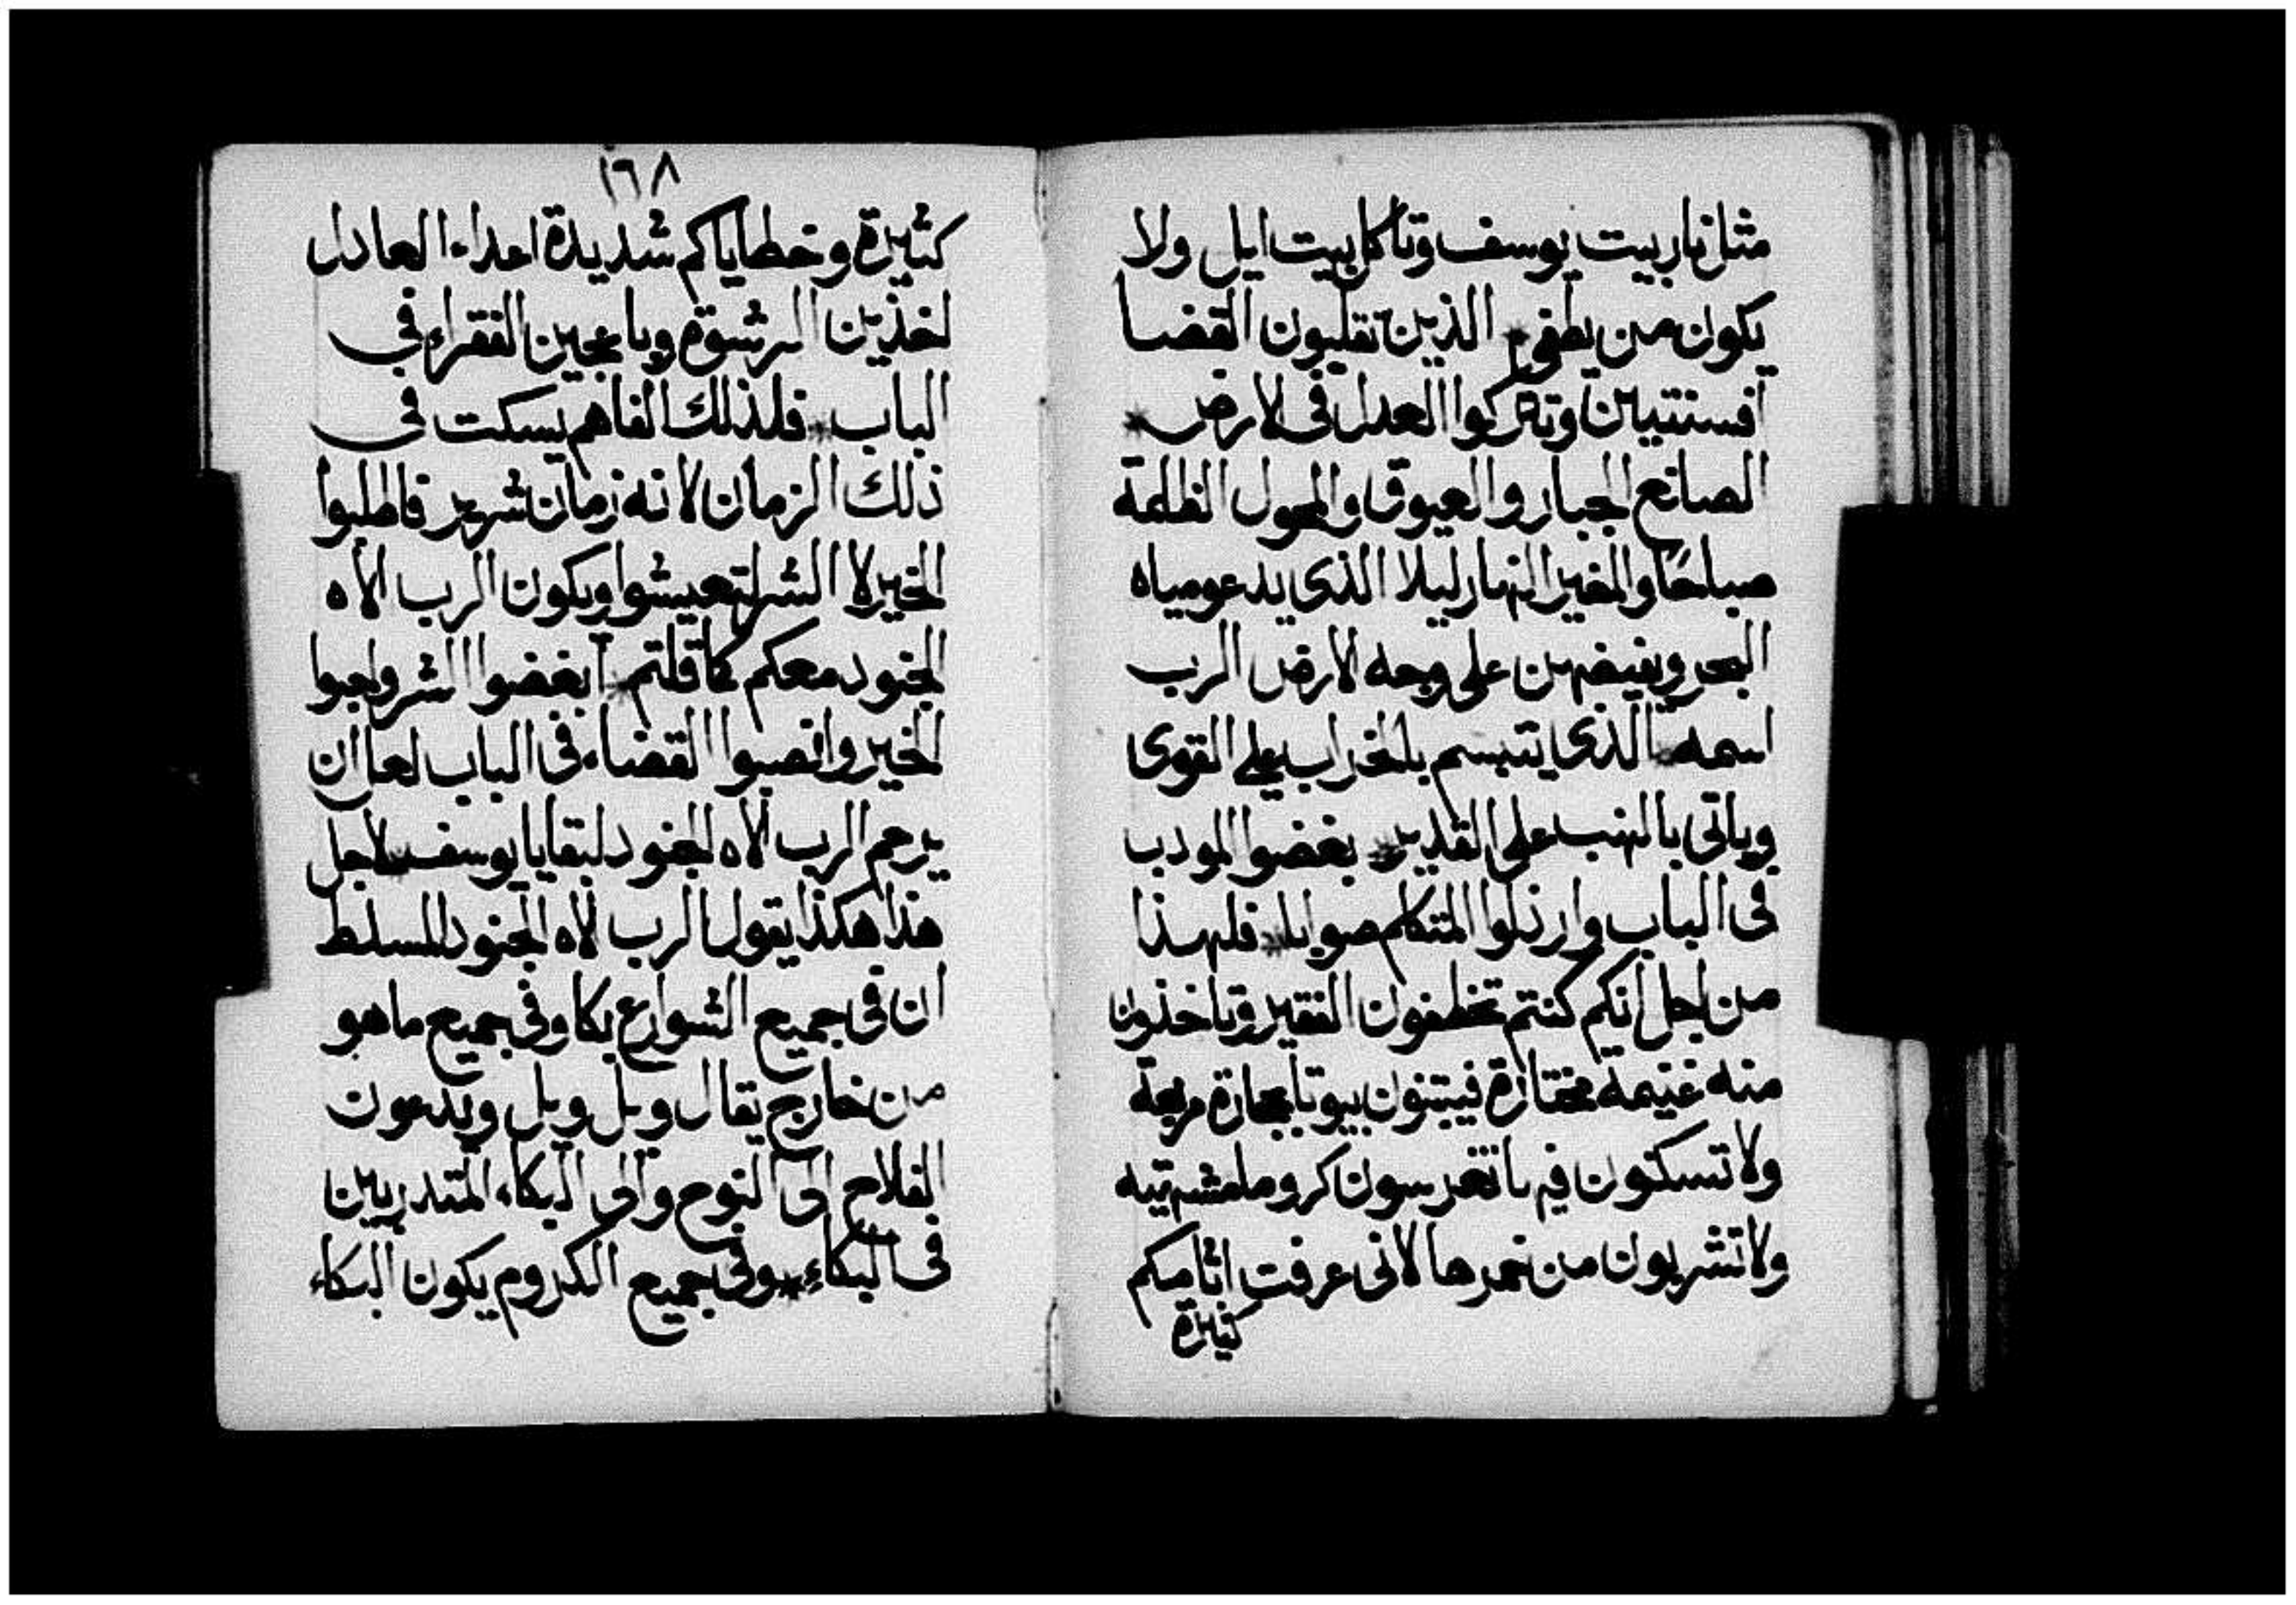 مثل نار بيت يوسف وتاكل بيت ايل ولا
يكون من يطفي * الذين تقلبون القضا
افسنتيان وتتركوا العدل في الارض *
الصانع الجبار والعيوق والمحول الظلمة
صباحًا والمغير النهار ليلا الذى يدعو مياه
البحر ويفيضهن على وجه الارض الرب
اسمه * الذى يتبسم بالخراب على القوى
وياتى بالنهب على القدير * بغضوا المودب
فى الباب وارذلوا المتكلم صوابا * فلهذا
من اجل انكم كنتم تخطفون الفقير وتاخذون
منه غنيمة مختارة فيبتنون بيوتا بحجارة مربعة
ولا تسكنون فيها تغرسون كروما مشتهيه
ولا تشربون من خمرها لانى عرفت اثامكم
كثيرة
١٦٨
كثيرة وخطاياكم شديدة اعداء العادل
اخذين الرشوة وباعجين الفقراء في
الباب * فلذلك الفاهم يسكت فى
ذلك الزمان لانه زمان شرير فاطلبوا
الخير لا الشر لتعيشوا ويكون الرب الاه
الجنود معكم كما قلتم * ابغضوا الشر واحبوا
الخير وانصبوا القضاء فى الباب لعل ان
يرحم الرب الاه الجنود لبقايا يوسف * لاجل
هذا هكذا يقول الرب الاه الجنود المسلط
ان فى جميع الشوارع بكا وفى جميع ما هو
من خارج يقال ويل ويل ويدعون
الفلاح الى النوح والى البكاء المتدربين
فى البكاء * وفى جميع الكروم يكون البكاء